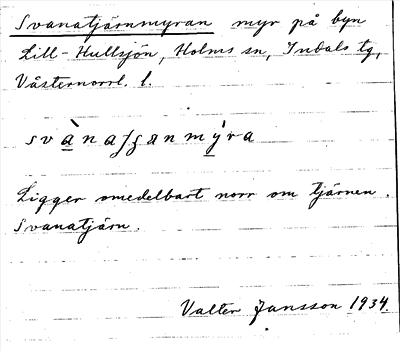 Svanatjärnmyran myr på byn
Lill-Hullsjön, Holms sn, Indals tg,
Västernorrl. l.
Ligger omedelbart norr om tjärnen
Svanatjärn.
Valter Jansson 1934.